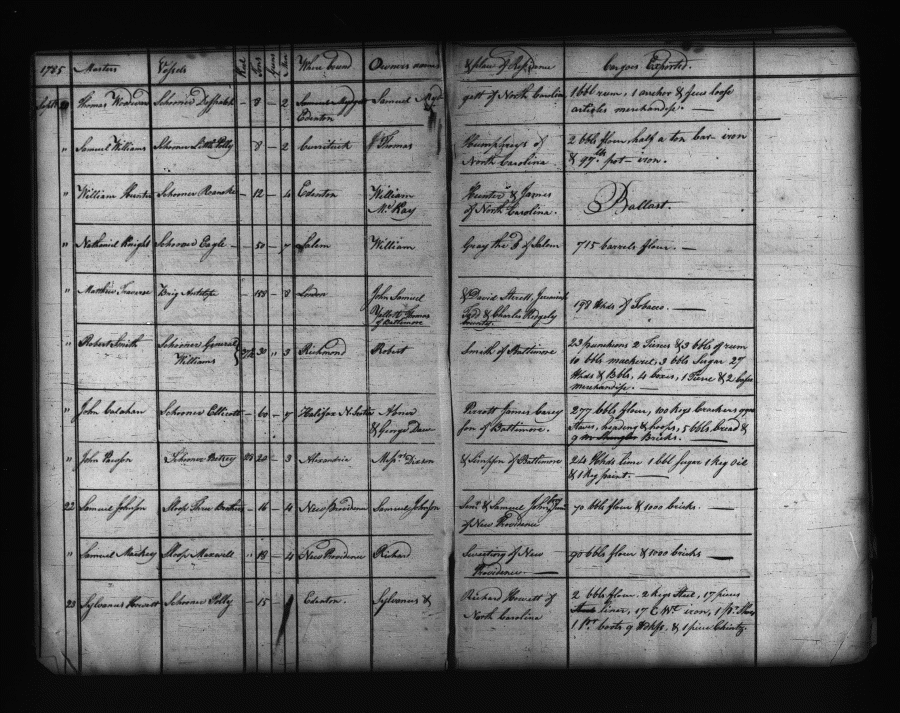 1785 Masters Vessels Tons Guns Men Where bound Owners names & place of Residence Cargoes Exported.
Thomas Schooner Dispatch - 8 - 2 Samuel Samuel gett of North Carolina 1 bbl rum, 1 anchor & few loose
Edenton articles merchandise. —
" Samuel Williams Schooner Little Polly - 8 - 2 Currituck Thomas Humphreys of 2 bbls flour half a ton bar iron
North Carolina & pot iron.
" William Hunter Schooner Roanoke - 12 - 4 Edenton William Hunter & James Ballast.
McKay of North Carolina.
" Nathaniel Knight Schooner Eagle - 50 - 7 Salem William Gray the of Salem 715 barrels flour. —
" Matthew Traverse Brig - 188 - 8 London John Samuel & David Sterett, Jeremiah 198 Hhds of Tobacco —
Yellott Thomas & Charles Ridgely
of Baltimore County.
" Robert Smith Schooner General 30 " 3 Richmond Robert Smith of Baltimore 23 puncheons 2 Tierces & 3 bbls of rum
Williams 10 bbls mackerel, 3 bbls Sugar 27
Hhds & Bbls, 4 boxes, 1 Tierce & 2
merchandise. —
" John Calahan Schooner Ellicott - 60 - 7 Halifax N. Abner Perrott James Carey 277 bbls flour, 100 Kegs Crackers
& George son of Baltimore. Staves, heading & hoops, 5 bbls bread &
Bricks. —
" John Schooner Betsey 20 - 3 Alexandria Messrs Dixon & Simpson of Baltimore 24 Hhds lime 1 bbl Sugar 1 Keg Oil
& 1 Keg paint. —
22 Samuel Johnson Sloop Three Brothers - 16 - 4 New Providence Samuel Johnson & Samuel Johnson 70 bbls flour & 1000 bricks. —
of New Providence
" Samuel Mackey Sloop Maxwell " 18 - 4 New Providence Richard Sweeting of New 90 bbls flour & 1000 bricks —
Providence. —
23 Sylvanus Howett Schooner Polly - 15 - Edenton. Sylvanus & Richard Howett of 2 bbls flour. 2 Kegs Steel, 17 pieces
North Carolina linen, 17 C Wt. iron, 1 pr.
1 pr. boots & 1 piece Chintz.